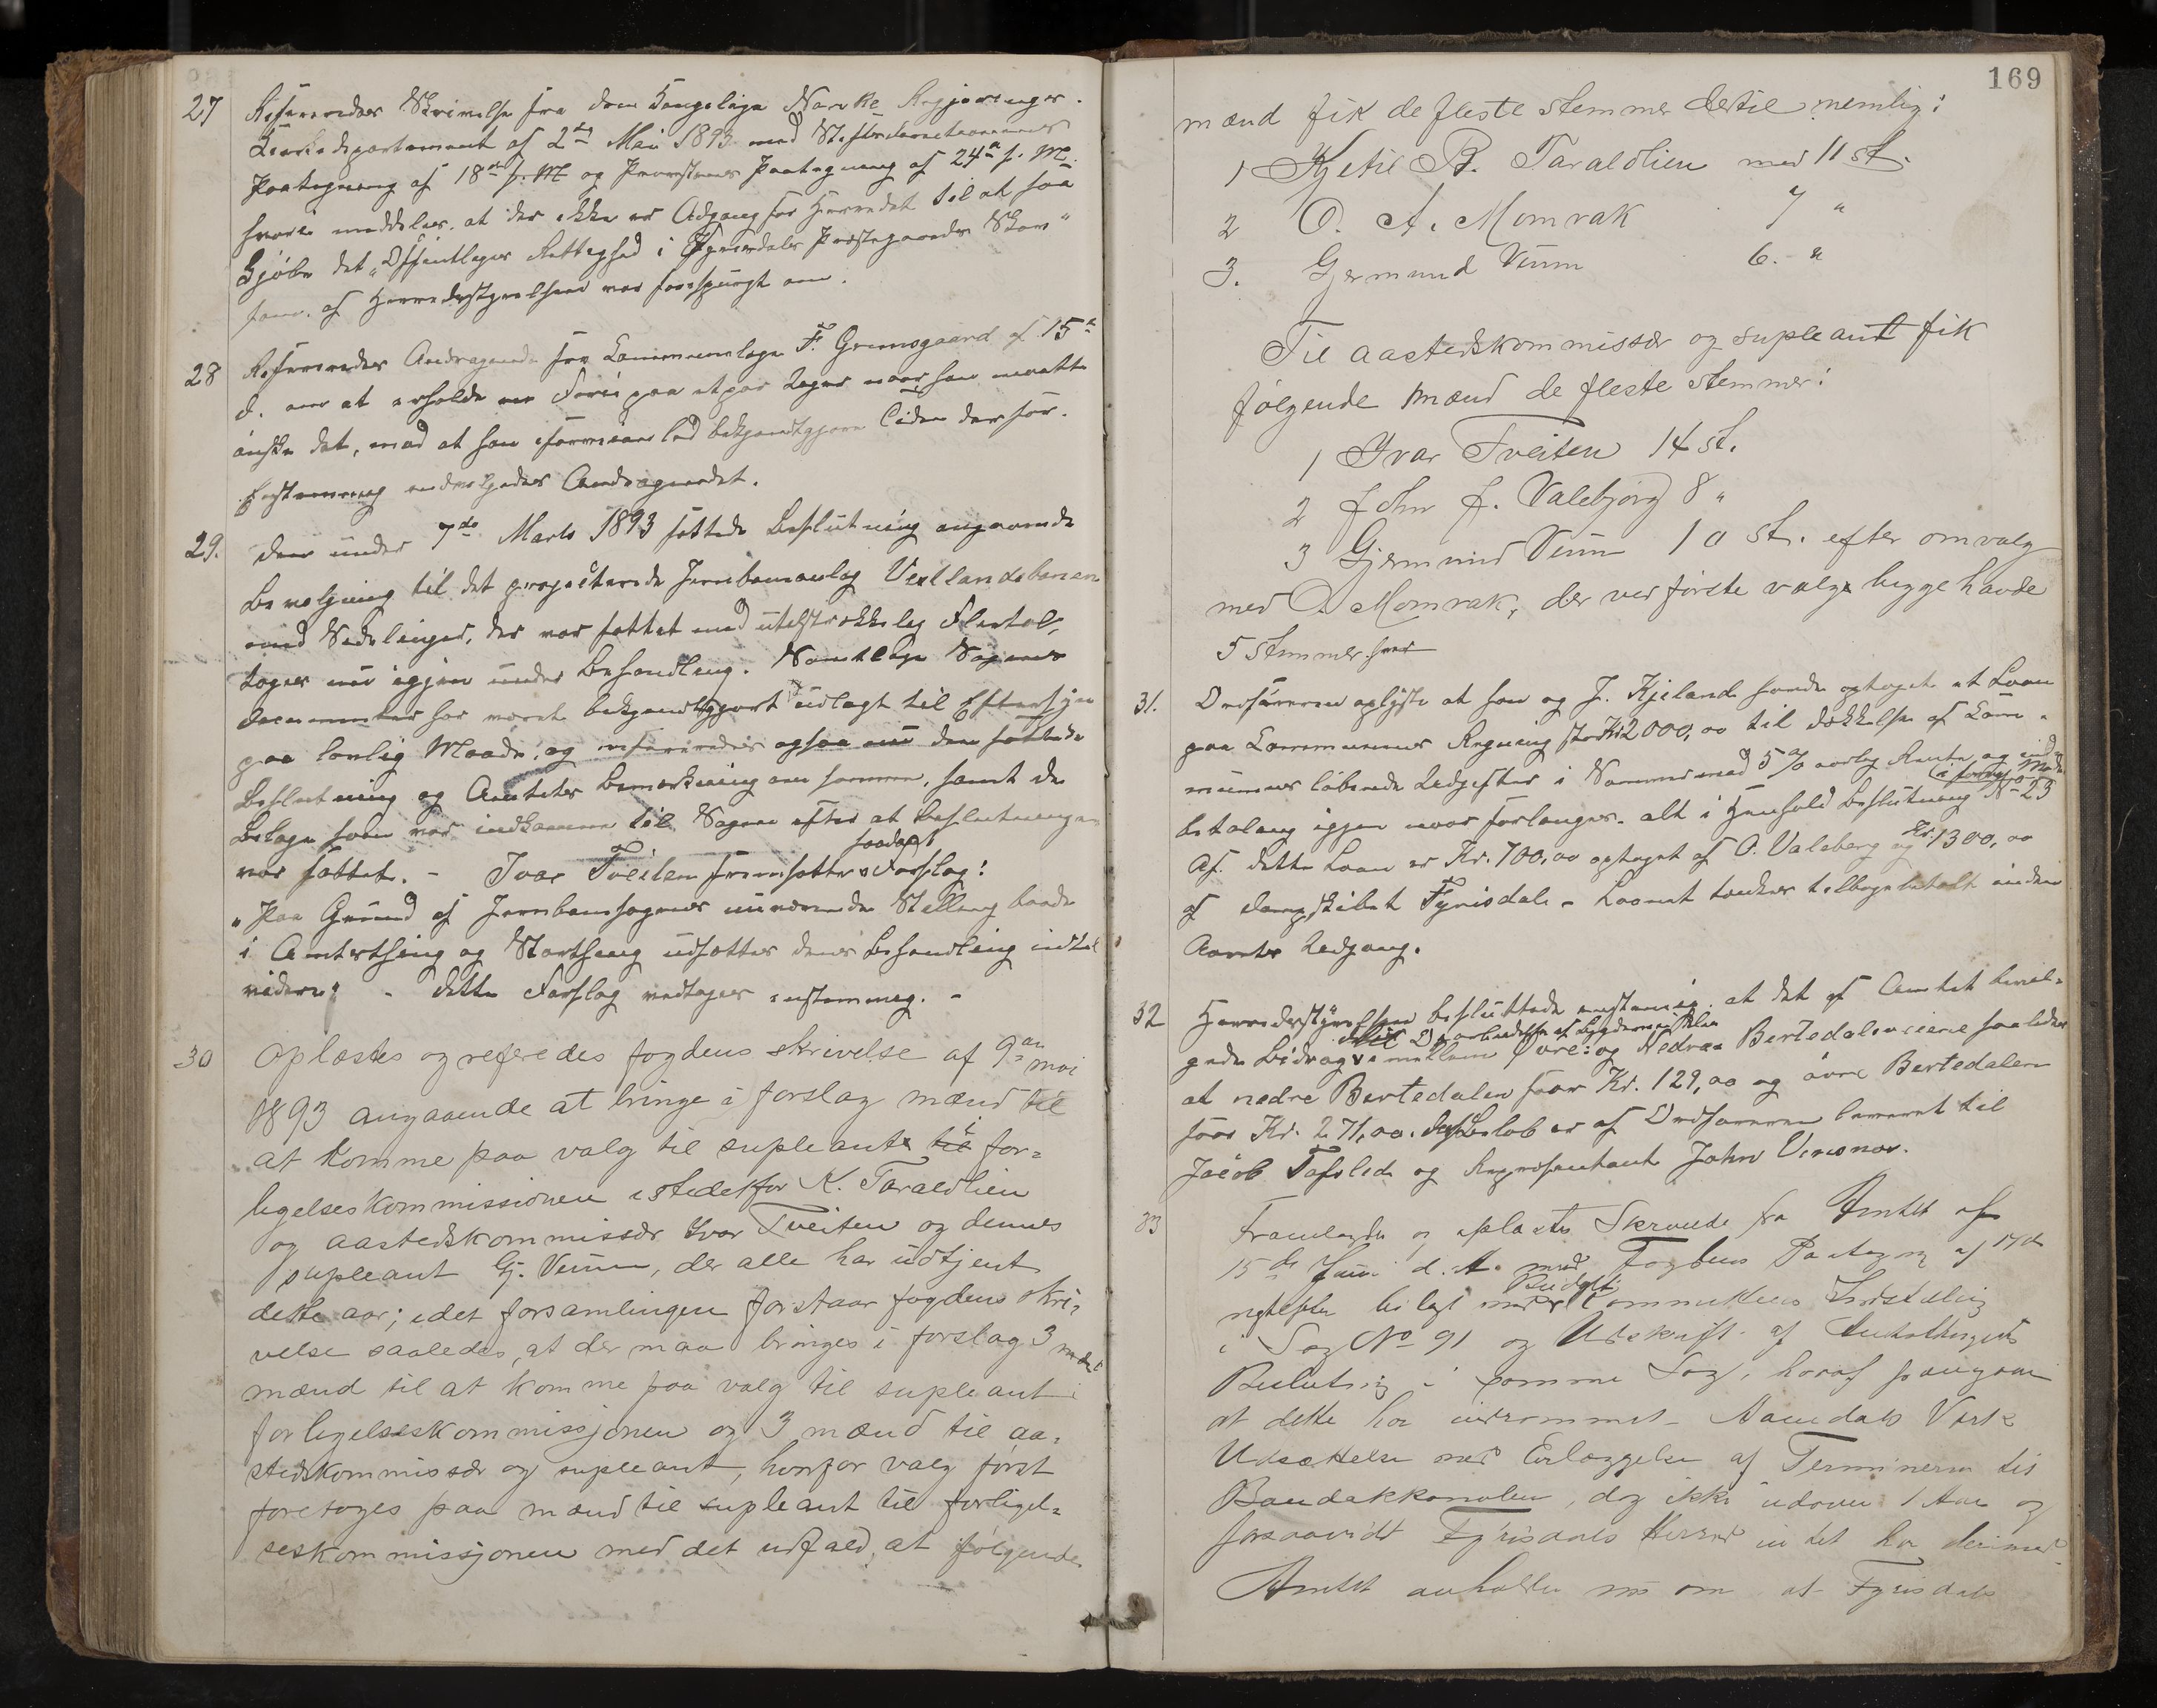 27 Refereredes Skrivelse fra den Kongelige Norske Regjerings
Kirkedepartement af 2den Mai 1893 med Stiftsdirectionens
Paategning af 18de s. M. og Provstens Paategning af 24de s. M.
hvori meddeles, at der ikke er Adgang for Herredet til at faa
kjøbe det "Offentliges Rettighed i Præstegaardens Skov"
som af Herredsstyrelsen var forespurgt om.
28 Refereredes Andragende fra Kommunelæge F. Grønsgaard af 15de
d. om at erholde en Ferie paa et par Uger naar han maatte
ønske det, mod at han iforveien lod bekjendtgjøre Tiden derfor.
Enstemmig Andragendet.
29. Den under 7de Marts 1893 fattede Beslutning angaaende
Bevilgning til det projecterede Jernbaneanlæg Vestlandsbanen
med Sidelinjer, der var fattet med utilstrækkelig Flertal,
toges nu igjen under Behandling. Samtlige Sagens
Documenter har været bekjendtgjort udlagt til Eftersyn
paa lovlig Maade, og refereredes ogsaa nu den fattede
Beslutning og Amtets Bemærkning om samme, samt de
Bilage som var indkomne til Sagen efter at Beslutningen
var fattet. - Ivar Tveiten fremsatte saadant Forslag:
"Paa Grund af Jernbanesagens nuværende Stilling baade
i Amtsthing og Storthing udsættes denes Behandling indtil
videre". - Dette Forslag vedtoges enstemmig. -
30 Oplæstes og referedes fogdens skrivelse af 9de mai
1893 angaaende at bringe i forslag mænd til
at komme paa valg til supleant til for=
ligelseskommissionen istedetfor K. Taraldlien
og aastedskommissær Ivar Tveiten og dennes
supleant Gj. Veum, der alle har udtjent
dette aar; idet forsamlingen forstaar fogdens skri=
velse saaledes, at der maa bringes i forslag 3
mænd til at komme paa valg til supleant i
forligelseskommissjonen og 3 mænd til aa=
stedskommissær og supleant, hvorfor valg først
foretoges paa mænd til supleant til forligel=
seskommissjonen med det udfald, at følgende
169
mænd fik de fleste stemmer dertil nemlig:
1 Kjetil B. Taraldlien med 11 st.
2 O. A. Momrak 7 "
3. Gjermund Veum 6. "
Til aastedskommissær og supleant fik
følgende mænd de fleste stemmer:
1 Ivar Tveiten 14 st.
2 John J. Valebjørg 8 "
3 Gjermund Veum 10 st. efter omvalg
med O. Momrak, der ved første valg begge havde
5 stemmer hver
31. Ordføreren oplyste at han og J. Kjeland havde optaget et Laan
paa Kommunens Regning stort Kr 2000,00 til dækkelse af Kom=
munens løbende Udgifter i Sommer mod 5 % aarlig Rente og
betaling igjen naar forlanges. alt i Henhold Beslutning No 23
Af dette Laan er Kr. 700,00 optaget af O. Valeberg og Kr. 1300,00
af Dampskibet Fyrisdal. - Laanet tænkes tilbagebetalt inden
Aarets Udgang.
32 Herredsstyrelsen besluttede enstemmig, at det af Amtet bevil=
gede Bidrag til Oparbeidelse af mellem Øvre og Nedre Bertedalen saaledes
at nedre Bertedalen faar Kr. 129,00 og øvre Bertedalen
faar Kr. 271,00. Beløb er af Ordføreren leveret til
Jacob og Repræsentant John
33 Fremlagdes og oplæstes Skrivelse fra Amtet af
15de Juni d. A. med Fogdens Paategning af 17de
bilagt med Budget Committeens Indstilling
i Sag No 91 og Udskrift af Amtsthingets
Beslutning i samme Sag, hvoraf fremgaar
at dette har indrømmet Aamdals Værk
Udsættelse med Erlæggelse af Terminerne til
Bandakkanalen, dog ikke udover 1 Aar og
forsaavidt Fyrisdals Herred intet har derimod
Amtet anholder nu om at Fyrisdals